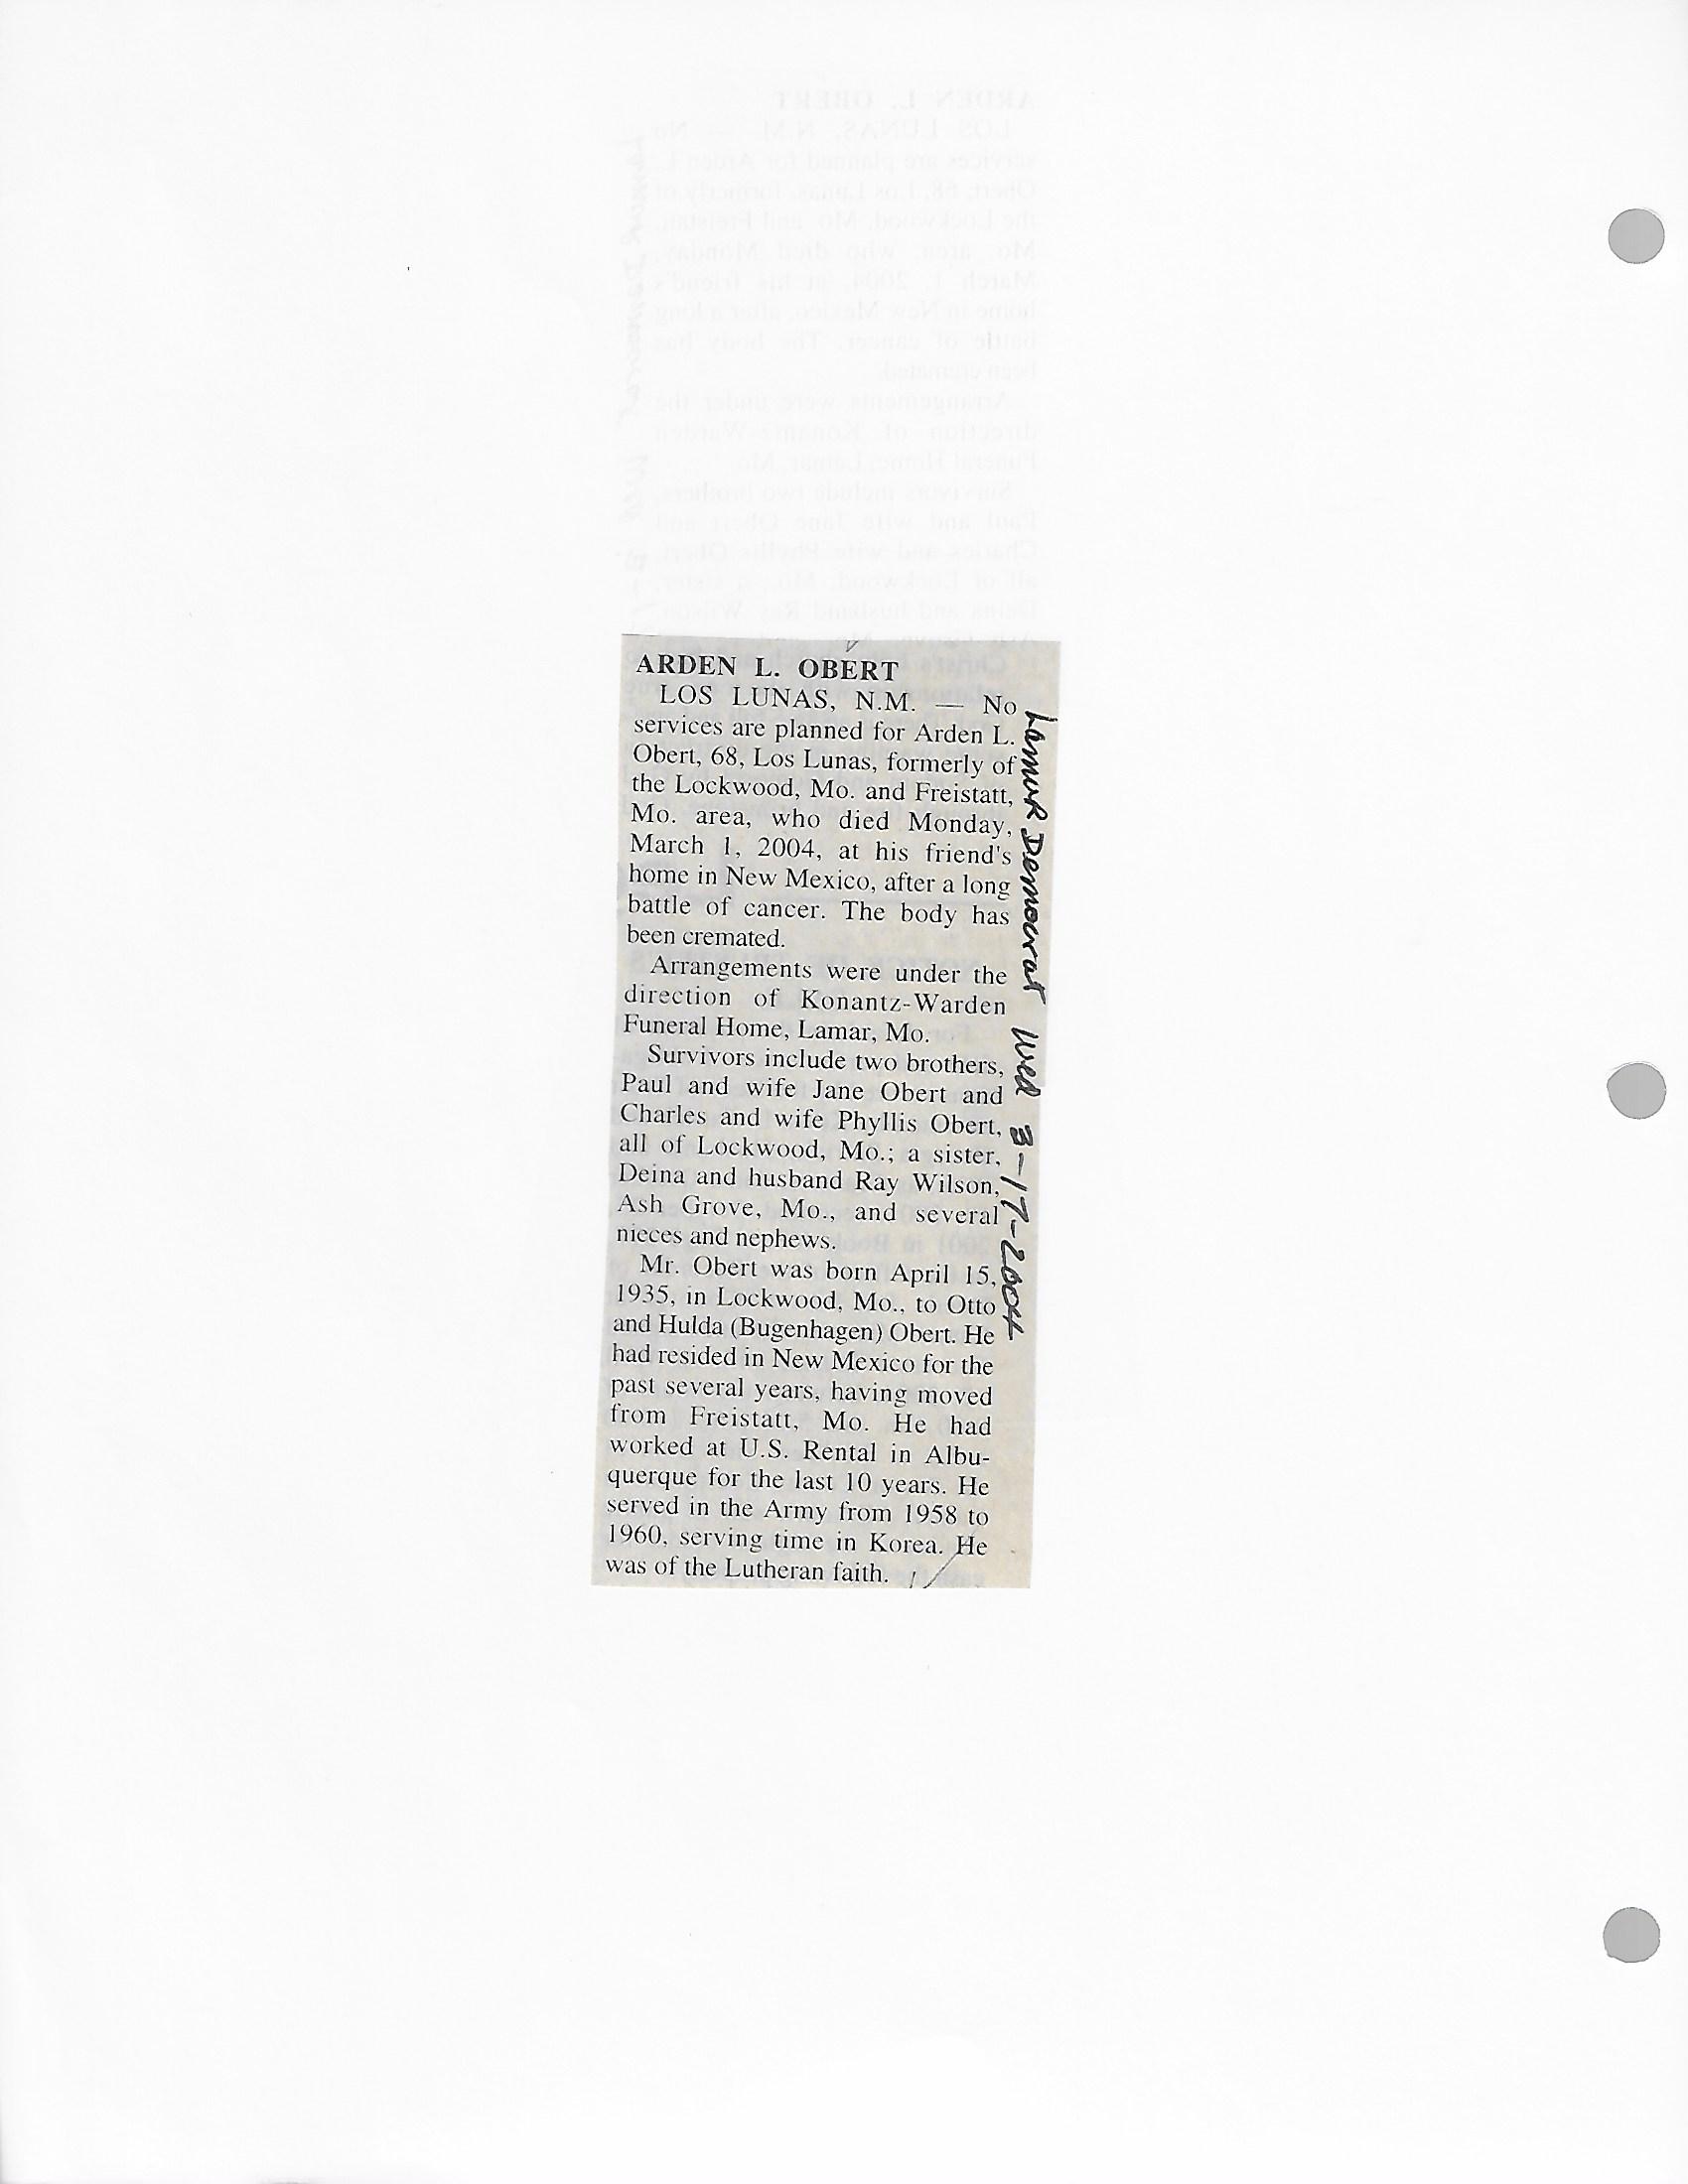 ARDEN L. OBERT
LOS LUNAS, N.M. — No
services are planned for Arden L.
Obert, 68, Los Lunas, formerly of
the Lockwood, Mo. and Freistatt,
Mo. area, who died Monday,
March 1, 2004, at his friend's
home in New Mexico, after a long
battle of cancer. The body has
been cremated.
Arrangements were under the
direction of Konantz-Warden
Funeral Home, Lamar, Mo.
Survivors include two brothers,
Paul and wife Jane Obert and
Charles and wife Phyllis Obert,
all of Lockwood, Mo.; a sister,
Deina and husband Ray Wilson,
Ash Grove, Mo., and several
nieces and nephews.
Mr. Obert was born April 15,
1935, in Lockwood, Mo., to Otto
and Hulda (Bugenhagen) Obert. He
had resided in New Mexico for the
past several years, having moved
from Freistatt, Mo. He had
worked at U.S. Rental in Albu-
querque for the last 10 years. He
served in the Army from 1958 to
1960, serving time in Korea. He
was of the Lutheran faith.
Lamar Democrat Wed 3-17-2004